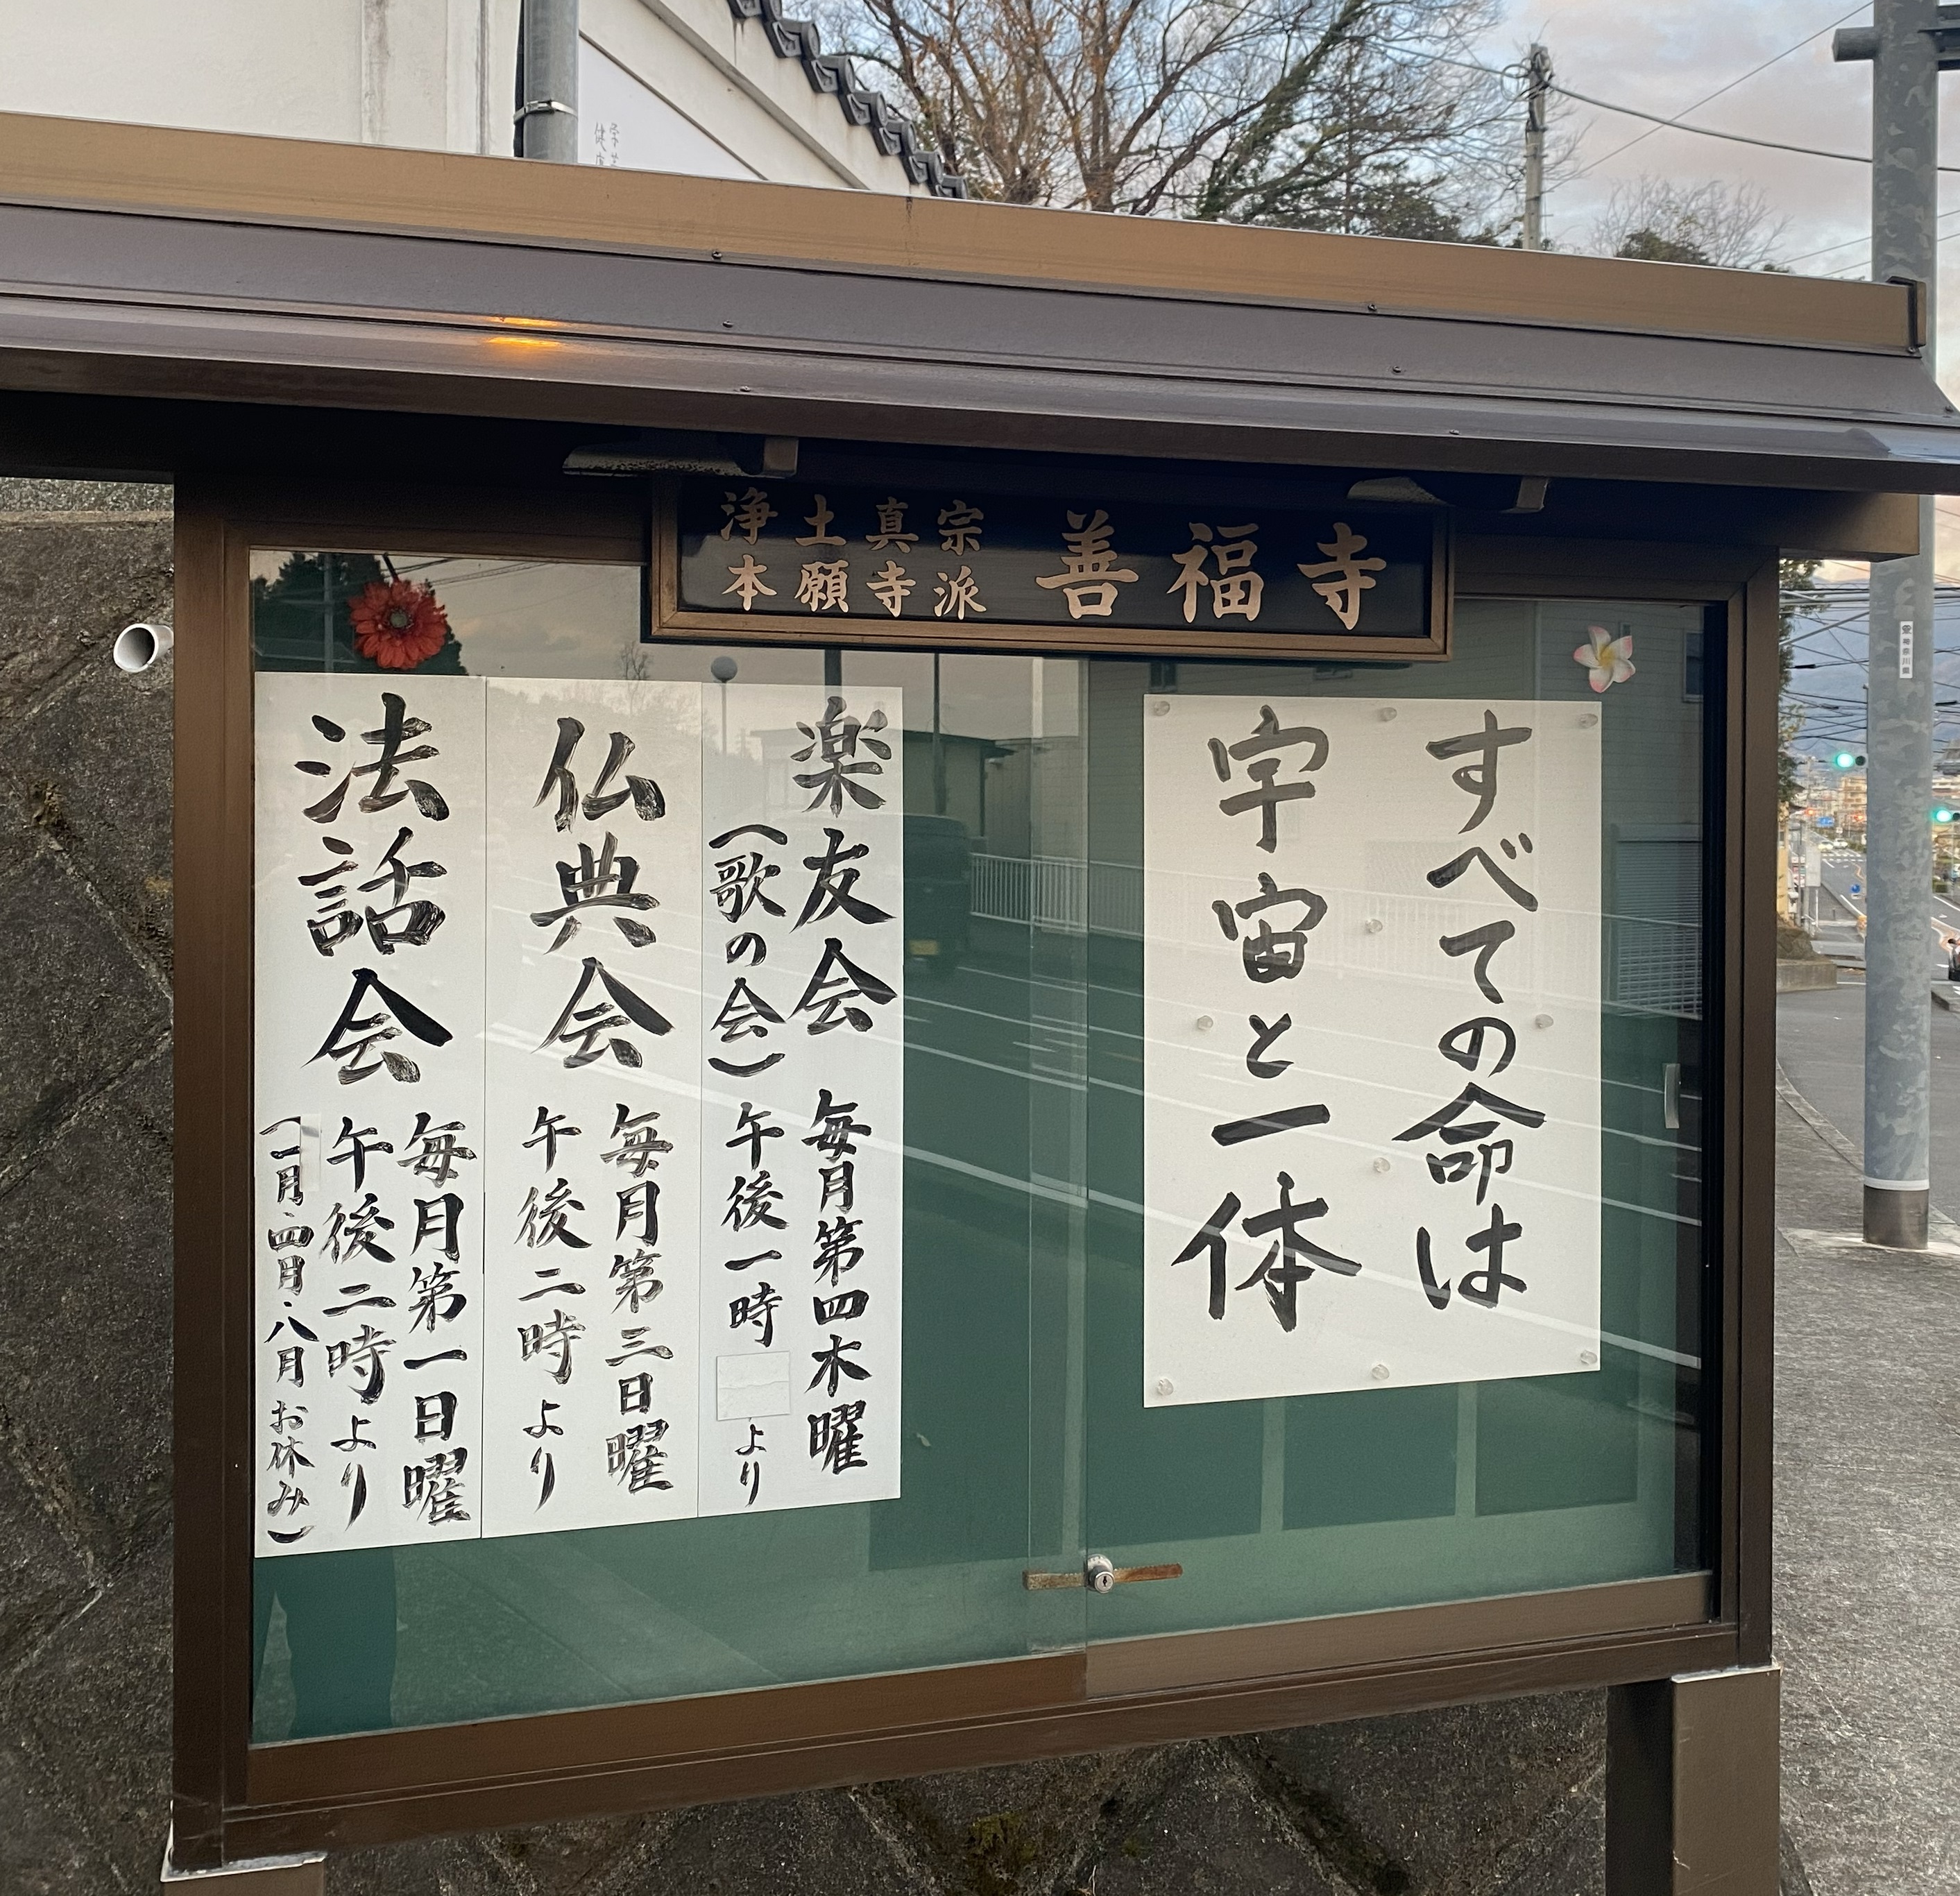 浄土真宗
本願寺派
善福寺
すべての命は
宇宙と一体
楽友会
(歌の会)
毎月第四木曜
午後一時より
仏典会
毎月第三日曜
午後二時より
法話会
毎月第一日曜
午後二時より
(一月・四月・八月お休み)